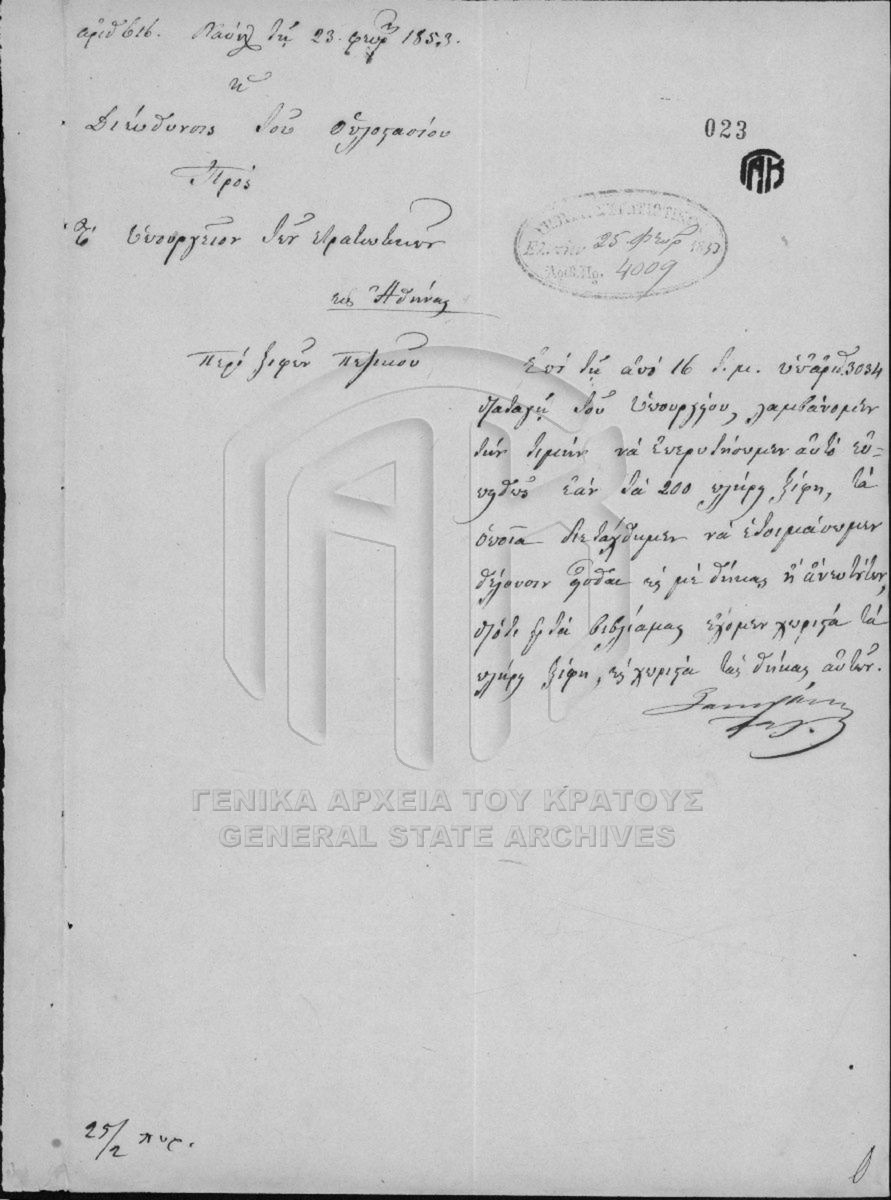 ἀριθ 616. Ναύπλ τῇ 23 φεβρ 1853.
Ἡ
Διεύθυνσις τοῦ ὁπλοστασίου
Πρὸς
Τὸ Ὑπουργεῖον τῶν στρατιωτικῶν
εἰς Ἀθήνας
Περὶ ξιφῶν πεζικοῦ
023
ΓΑΚ
25 φεβρ 1853
Ἀριθ. Πρ. 4009
Ἐπὶ τῇ ἀπὸ 16 τ.μ. ὑπ' ἀριθ. 3034
διαταγῇ τοῦ Ὑπουργείου, λαμβάνομεν
τὴν τιμὴν νὰ ἐπερωτήσωμεν αὐτὸ εὐ-
πειθῶς ἐὰν τὰ 200 πλήρη ξίφη, τὰ
ὁποῖα διετάχθημεν νὰ ἑτοιμάσωμεν
θέλουσιν εἶσθαι μὲ θήκας ἢ ἄνευ τούτων,
διότι εἰς τὰ βιβλία μας ἔχομεν χωριστὰ τὰ
πλήρη ξίφη, καὶ χωριστὰ τὰς θήκας αὐτῶν.
ΓΕΝΙΚΑ ΑΡΧΕΙΑ ΤΟΥ ΚΡΑΤΟΥΣ
GENERAL STATE ARCHIVES
25/2 πυρ.